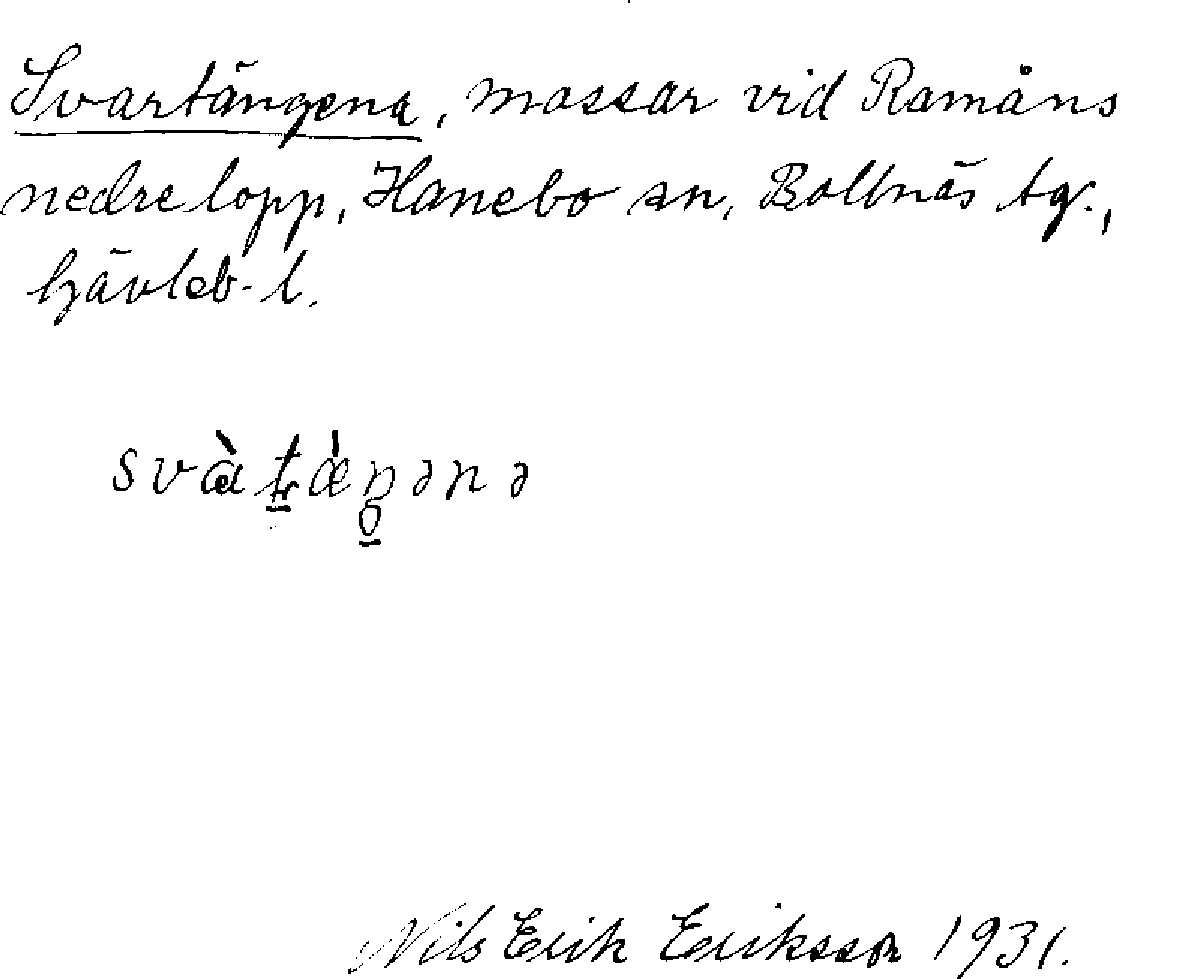 Svartängena, mossar vid Ramåns
nedre lopp, Hanebo sn, Bollnäs tg.,
Gävleb. l.
Nils Erik Eriksson 1931.